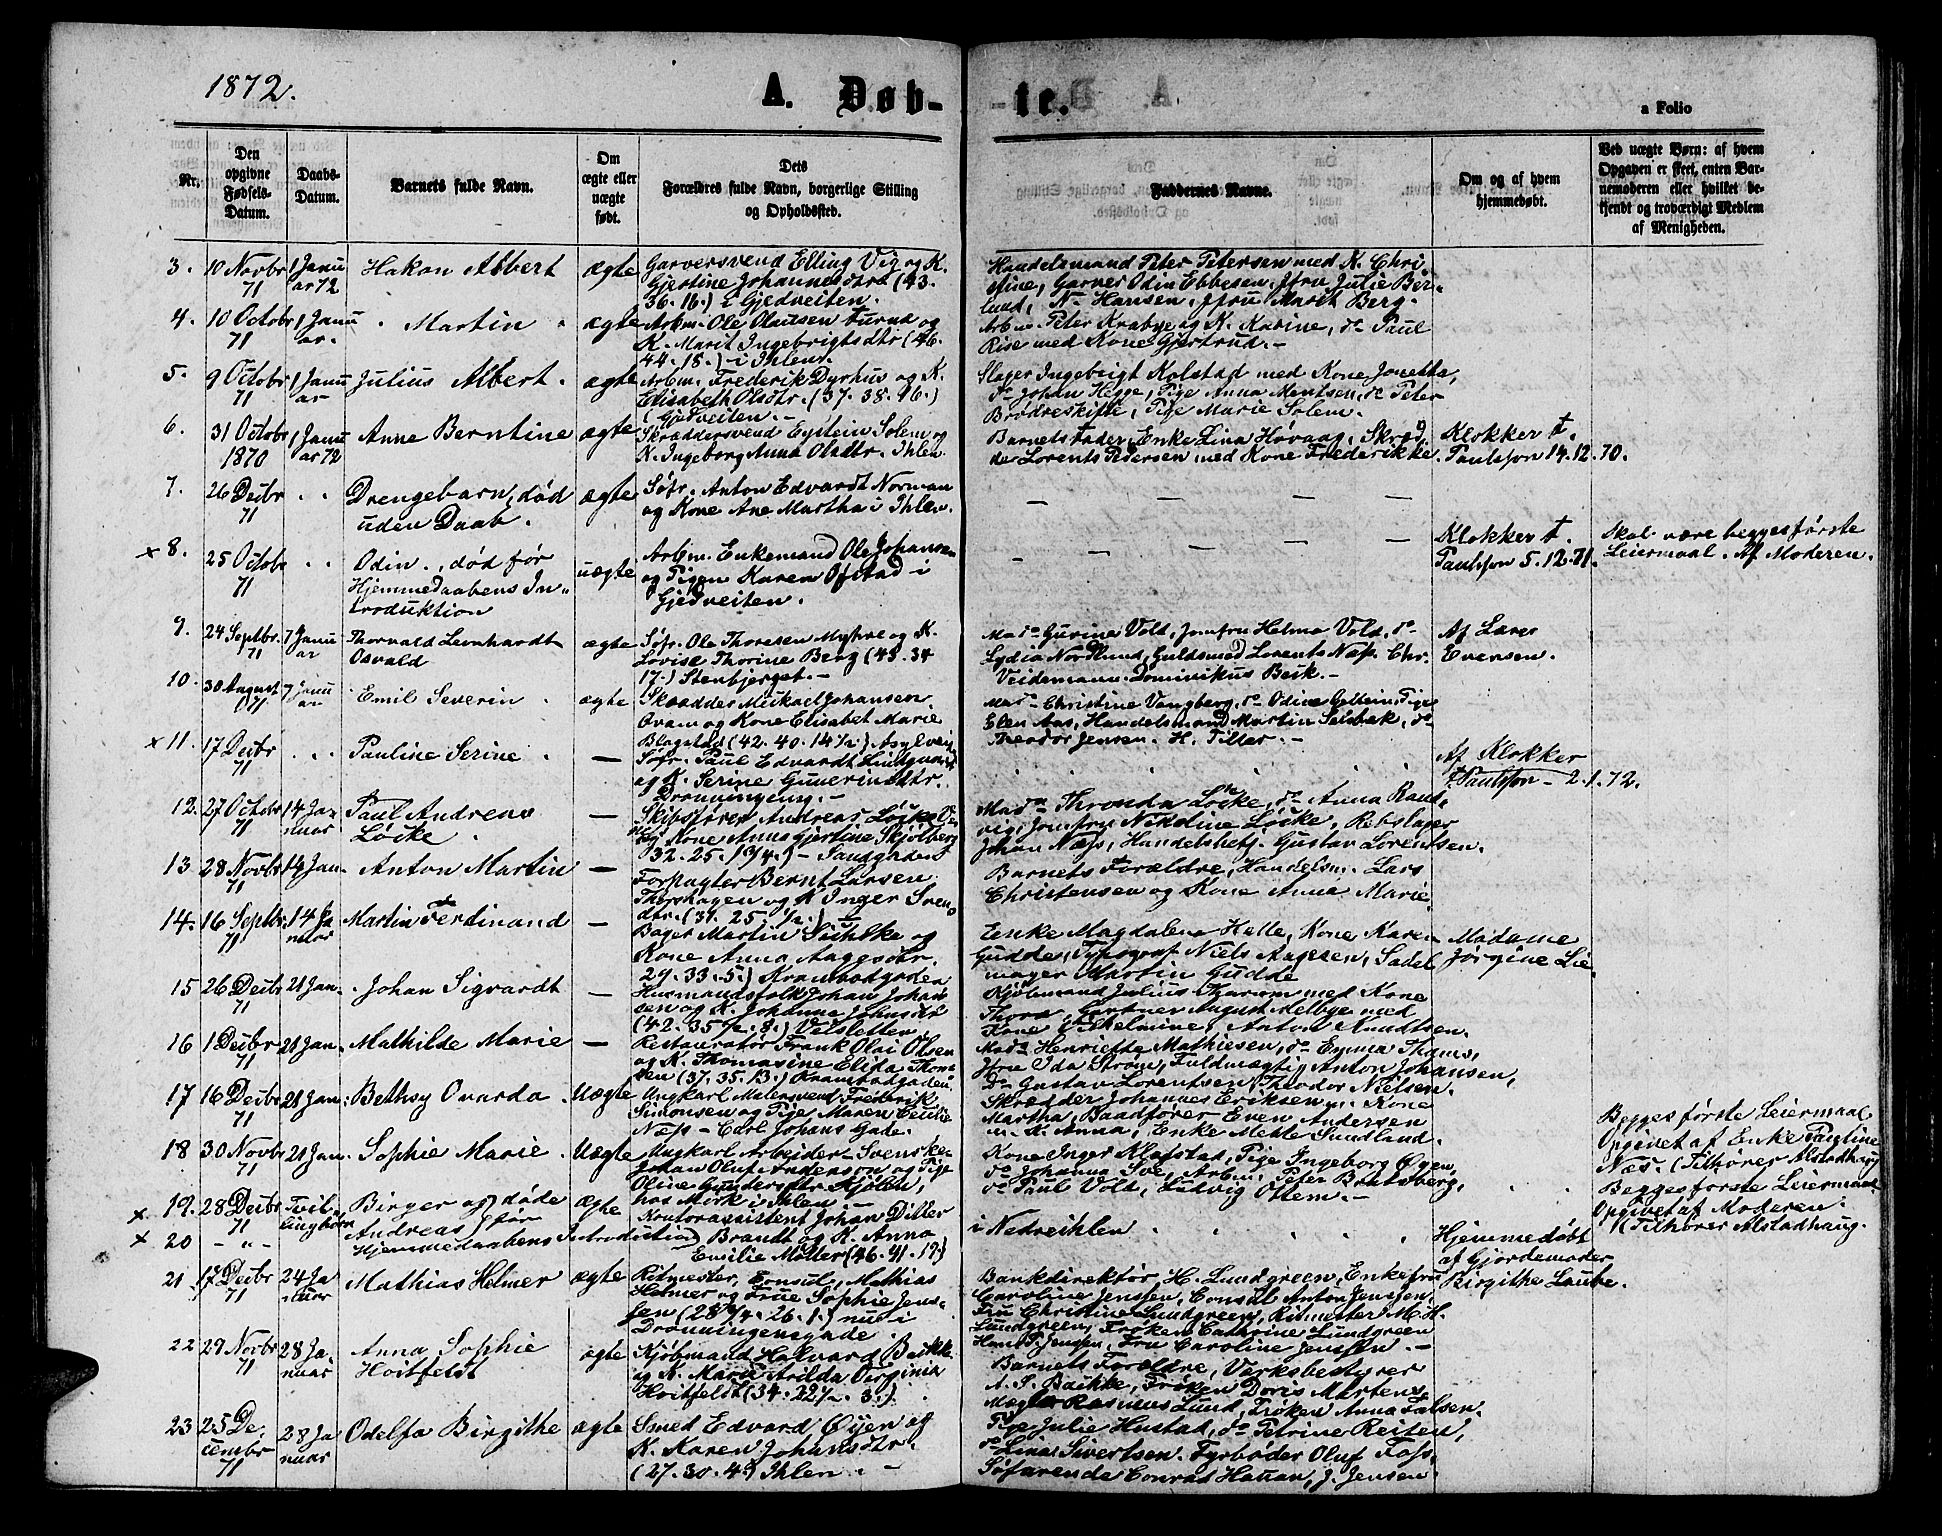 1872.
A. Døb-
-te.
a Folio
Nr.
Den
opgivne
Fødsels-
Datum.
Daabs-
Datum.
Barnets fulde Navn.
Om
ægte eller
uægte
født.
Dets
Forældres fulde Navn, borgerlige Stilling
og Opholdssted.
Faddernes Navne.
Om og af hvem
hjemmedøbt.
Ved uægte Børn: af hvem
Opgaven er skeet, enten Bar-
nemoderen eller hvilket be-
kjendt og troværdigt Medlem
af Menigheden.
3.
10 Novbr
71
1 Janu
ar 72
Hakon Albert
ægte
Garversvend Elling Vig og K.
Gjertine Johannesdtr (43.
36. 16.) i Gjedveiten.
Handelsmand Peter Petersen med K. Chri-
stine, Garver Odin Ebbesen, Jfru Julie Ber-
lund, N. Hansen, Jfru Marit Berg.
4.
10 Octobr
71
1 Janu
ar.
Martin
ægte
Arbm. Ole Olausen Furnu og
K. Marit Ingebrigtsdtr (46.
44. 18.) i Ihlen.
Arbm. Peter Krabye og K. Karine, do Paul
Rise med Kone Gjertrud.-
5.
9 Octobr
71
1 Janu
ar
Julius Albert.
ægte
Arbm. Frederik Dyrhus og K.
Elisabeth Olsdtr. (37. 38. 96.)
Gjedveiten.-
Slager Ingebrigt Kolstad med Kone Jonetta,
do Johan Hegge, Pige Anna Mentsen, do Peter
Brødreskifte, Pige Marie Solem.
6.
31 Octobr
1870
1 Janu
ar 72
Anne Berntine
ægte
Skræddersvend Eystein Solem og
K. Ingeborg Anna Olsdtr. Ihlen.
Barnets Fader, Enke Lina Høvaag, Skræd-
der Lorents Pedersen med Kone Frederikke.
Klokker t.
Paulsson 14.12.70.
7.
26 Decbr
71
Drengebarn, død
uden Daab.
ægte
Søfr. Anton Edvardt Norman
og Kone Ane Martha i Ihlen.
x 8.
25 Octobr
71
Odin, død før
Hjemmedaabens In-
troduktion
uægte
Arbm. Enkemand Ole Johansen
og Pigen Karen Øfstad i
Gjedveiten.
Klokker t.
Paulsson 5.12.71.
Skal være begges første
Leiermaal. Af Moderen.
9.
24 Septbr.
71
7 Janu
ar
Thorvald Leonhardt
Osvald
ægte
Søfr. Ole Thoresen Myhre og K.
Lovise Thorine Berg (43. 34
17.) Stenbjerget.-
Mad. Gurine Vold, Jomfru Helma Vold, do
Lydia Nordlund, Guldsmed Lorents Næss, Chr.
Veidemann, Dominikus Beik.-
Af Lars
Evensen.
10.
30 August
71
7 Janu
ar
Emil Severin
ægte
Skrædder Mickael Johansen
Qvam og Kone Elisabet Marie
Blagstad (42. 40. 14½.) Asylveiten
Mad. Christine Vangberg, do Odine Gellein, Pige
Elen Aas, Handelsmand Martin Selbæk, do
Theodor Jensen. H. Tiller.-
x 11.
17 Decbr
71
Pauline Serine
Søfr. Paul Edvardt Lindqvist
og K. Serine Gunerinsdtr.
Dronningensg.-
Af Klokker
t. Paulsson - 2.1.72.
12.
27 Octobr
71
14 Ja-
nuar
Paul Andreas
Løcke
Skibsfører Andreas Løcke
og Kone Anne Gjertine Skjølberg
(32. 25. 1¾.) - Sandgaden
Mad. Thronda Løcke, do Anna Rand,
Jomfru Nikoline Løcke, Rebslager
Johan Næss, Handelsbetj. Gustav Lorentsen.
13
28 Novbr
71
14 Jan.
Anton Martin
Forpagter Bernt Larsen
Thorshagen og K Inger Sven-
dtr. (31. 25. ½.)
Barnets Forældre, Handelsm. Lars
Christensen og Kone Anna Marie
14.
16 Septbr.
71
14 Ja
nuar
Martin Ferdinand
Bager Martin Suhlke og
Kone Anna Aagesdtr.
29. 33. 5.) Krambodgaden
Enke Magdalena Helle, Kone Karen
Gudde, Typograf Niels Aagesen, Sadel
mager Martin Gudde
Madame
Jørgine Lie
15
26 Decbr
71
21 Jan.
Johan Sigvardt
Husmandsfolk Johan Johan
sen og K. Johanna Johnsdtr
(42. 35½. 8.) Vaisletten
Kjøbmand Julius Thzarom med Kone
Thora, Gartner August Melbye med
Kone Vilhelmine, Anton Knudtsen.
16
1 Decbr
71
21 Jan.
Mathilde Marie
Restauratør Frank Olai Olsen
og K. Thomasine Elida Thom-
sen (37. 35. 13.) Krambodgaden
Mad. Henriette Mathiesen, do Emma Thams,
Jfru Ida Strøm, Fuldmægtig Anton Johansen,
do Gustav Lorentsen, Theodor Nielsen.
17
16 Decbr
71
21 Jan.
Bethsy Ovarda
Uægte
Ungkarl Malersvend Frederik
Simonsen og Pige Maren Cecilie
Næss - Carl Johans Gade.
Skrædder Johannes Eriksen m. Kone
Martha, Baadfører Even Andersen
m. K. Anna, Enke Mette Sundland.
Begges første Leiermaal
Opgivet af Enke Pauline
Næs. (Tilhører Alstadhaug
18
30 Novbr
71
21 Jan.
Sophie Marie
Uægte
Ungkarl Arbeider Svenske
Johan Oluf Anderson og Pige
Oline Gundersdtr Kjølen,
hos Mørk i Ihlen.
Kone Inger Klefstad, Pige Ingeborg Øyen,
do Johanna Sve, Arbm. Peter Bratsberg,
do Paul Vold, Ludvig Ottem.-
Begges første Leiermaal
Opgivet af Moderen.
(Tilhører Alstadhaug.
x 19.
28 Decbr
71
Tvil-
lingbørn
Birger og døde
Andreas før
Hjemmedaabens Introduction
ægte
Kontorassistent Johan Ditler
Brandt og K. Anna
Emilie Møller (46. 41. 19.)
i Nedreihlen
x 20
Hjemmedøbt
af Gjordemoder
Birgithe Laube.
21
17 Decbr
71
24 Ja
nuar
Mathias Helmer
ægte
Ritmester, Consul, Mathias
Helmer og Frue Sophie Jens-
sen (28¾. 26. 1.) nu i
Dronningensgade
Bankdirektør H. Lundgreen, Enkefru
Caroline Jenssen, Consul Anton Jenssen,
Fru Christine Lundgreen, Ritmester M. H.
Lundgreen, Frøken Cathrine Lundgreen
Hans P. Jenssen, Fru Caroline Jenssen.-
22
29 Novbr
71
28 Ja.
nuar
Anna Sophie
Hoitfeldt
ægte
Kjøbmand Halvard Bækk
og K. Marie Arilda Virginia
Hoitfeldt (34. 22½. 3.)
Barnets Forældre, Verksbestyrer
A. S. Bakke, Frøken Doris Martens
Mægler Rasmus Lund, Frøken Anna Falsen.
23
25 De.
cembr
71
28 Ja
nuar
Odelfa Birgithe
ægte
Smed Edvard Øyen og
K. Karen Johansdtr.
(27. 30. 4.) Ihlen.-
Pige Julie Hustad, do Petrine Reiten,
do Lina Sivertsen. Fyrbøder Oluf Foss,
Søfarende Conrad Hattan, J. Jensen